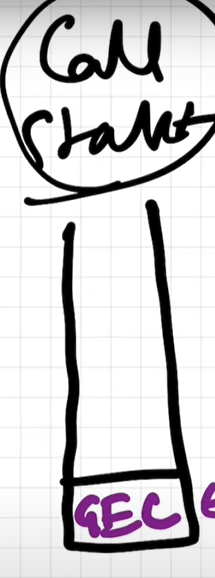 Call
Stack
GEC